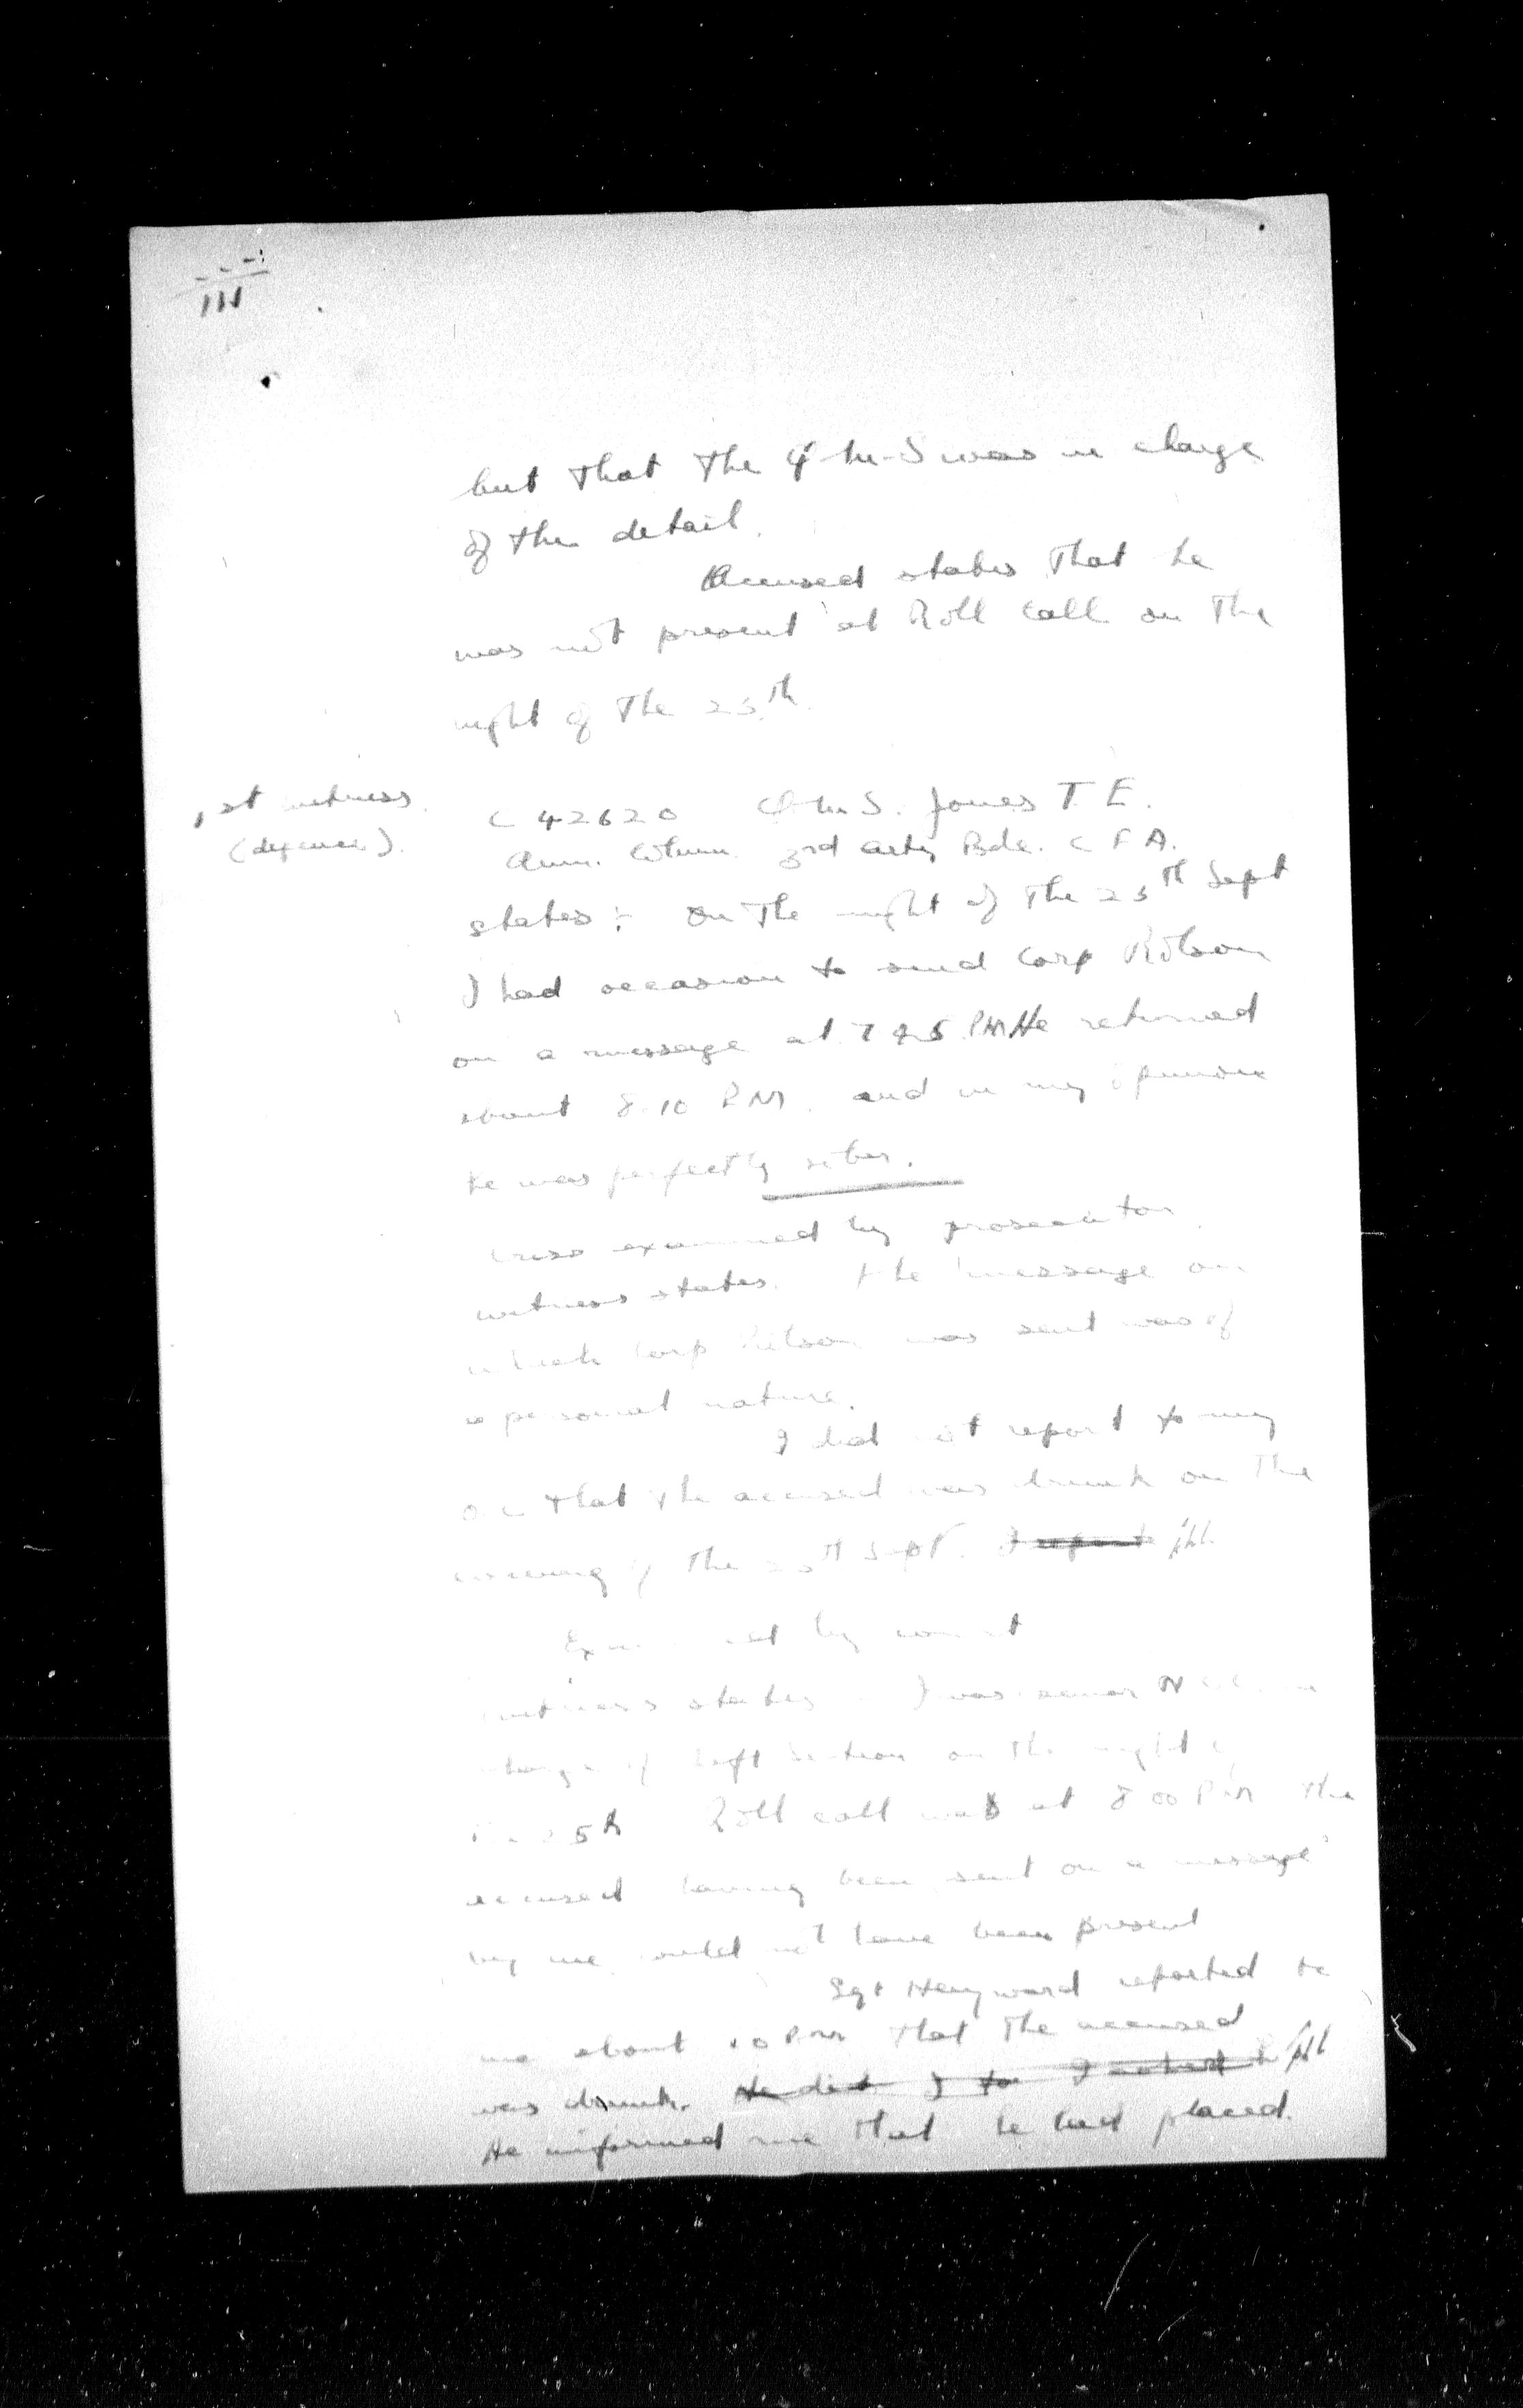 III
but that the Q-M-S was in charge
of the detail.
Accused states that he
was not present at Roll Call on the
night of the 25th.
1st witness.
(defence).
C 42620 Q.M.S. Jones T. E.
Amm. Column 3rd Arty Bde. C F A.
states :- On the night of the 25th Sept
I had occasion to send Corp
on a message at 7 45 PM He returned
about 8.10 P.M. and in my opinion
he was perfectly sober.
Cross examined by prosecutor.
witness states. The message on
which Corp was sent was of
a personal nature.
I did not report to my
O.C that the accused was drunk on the
evening of the 25th Sept.
Examined by court
witness states - I was senior N.C.O. in
charge of Left Section on the night of
the 25th Roll call was at 8 00 P.M the
accused having been sent on a message
by me could not have been present
Sgt Heyward reported to
me about 10 P.M that the accused
was drunk. He did I to I asked
He informed me that he had placed.